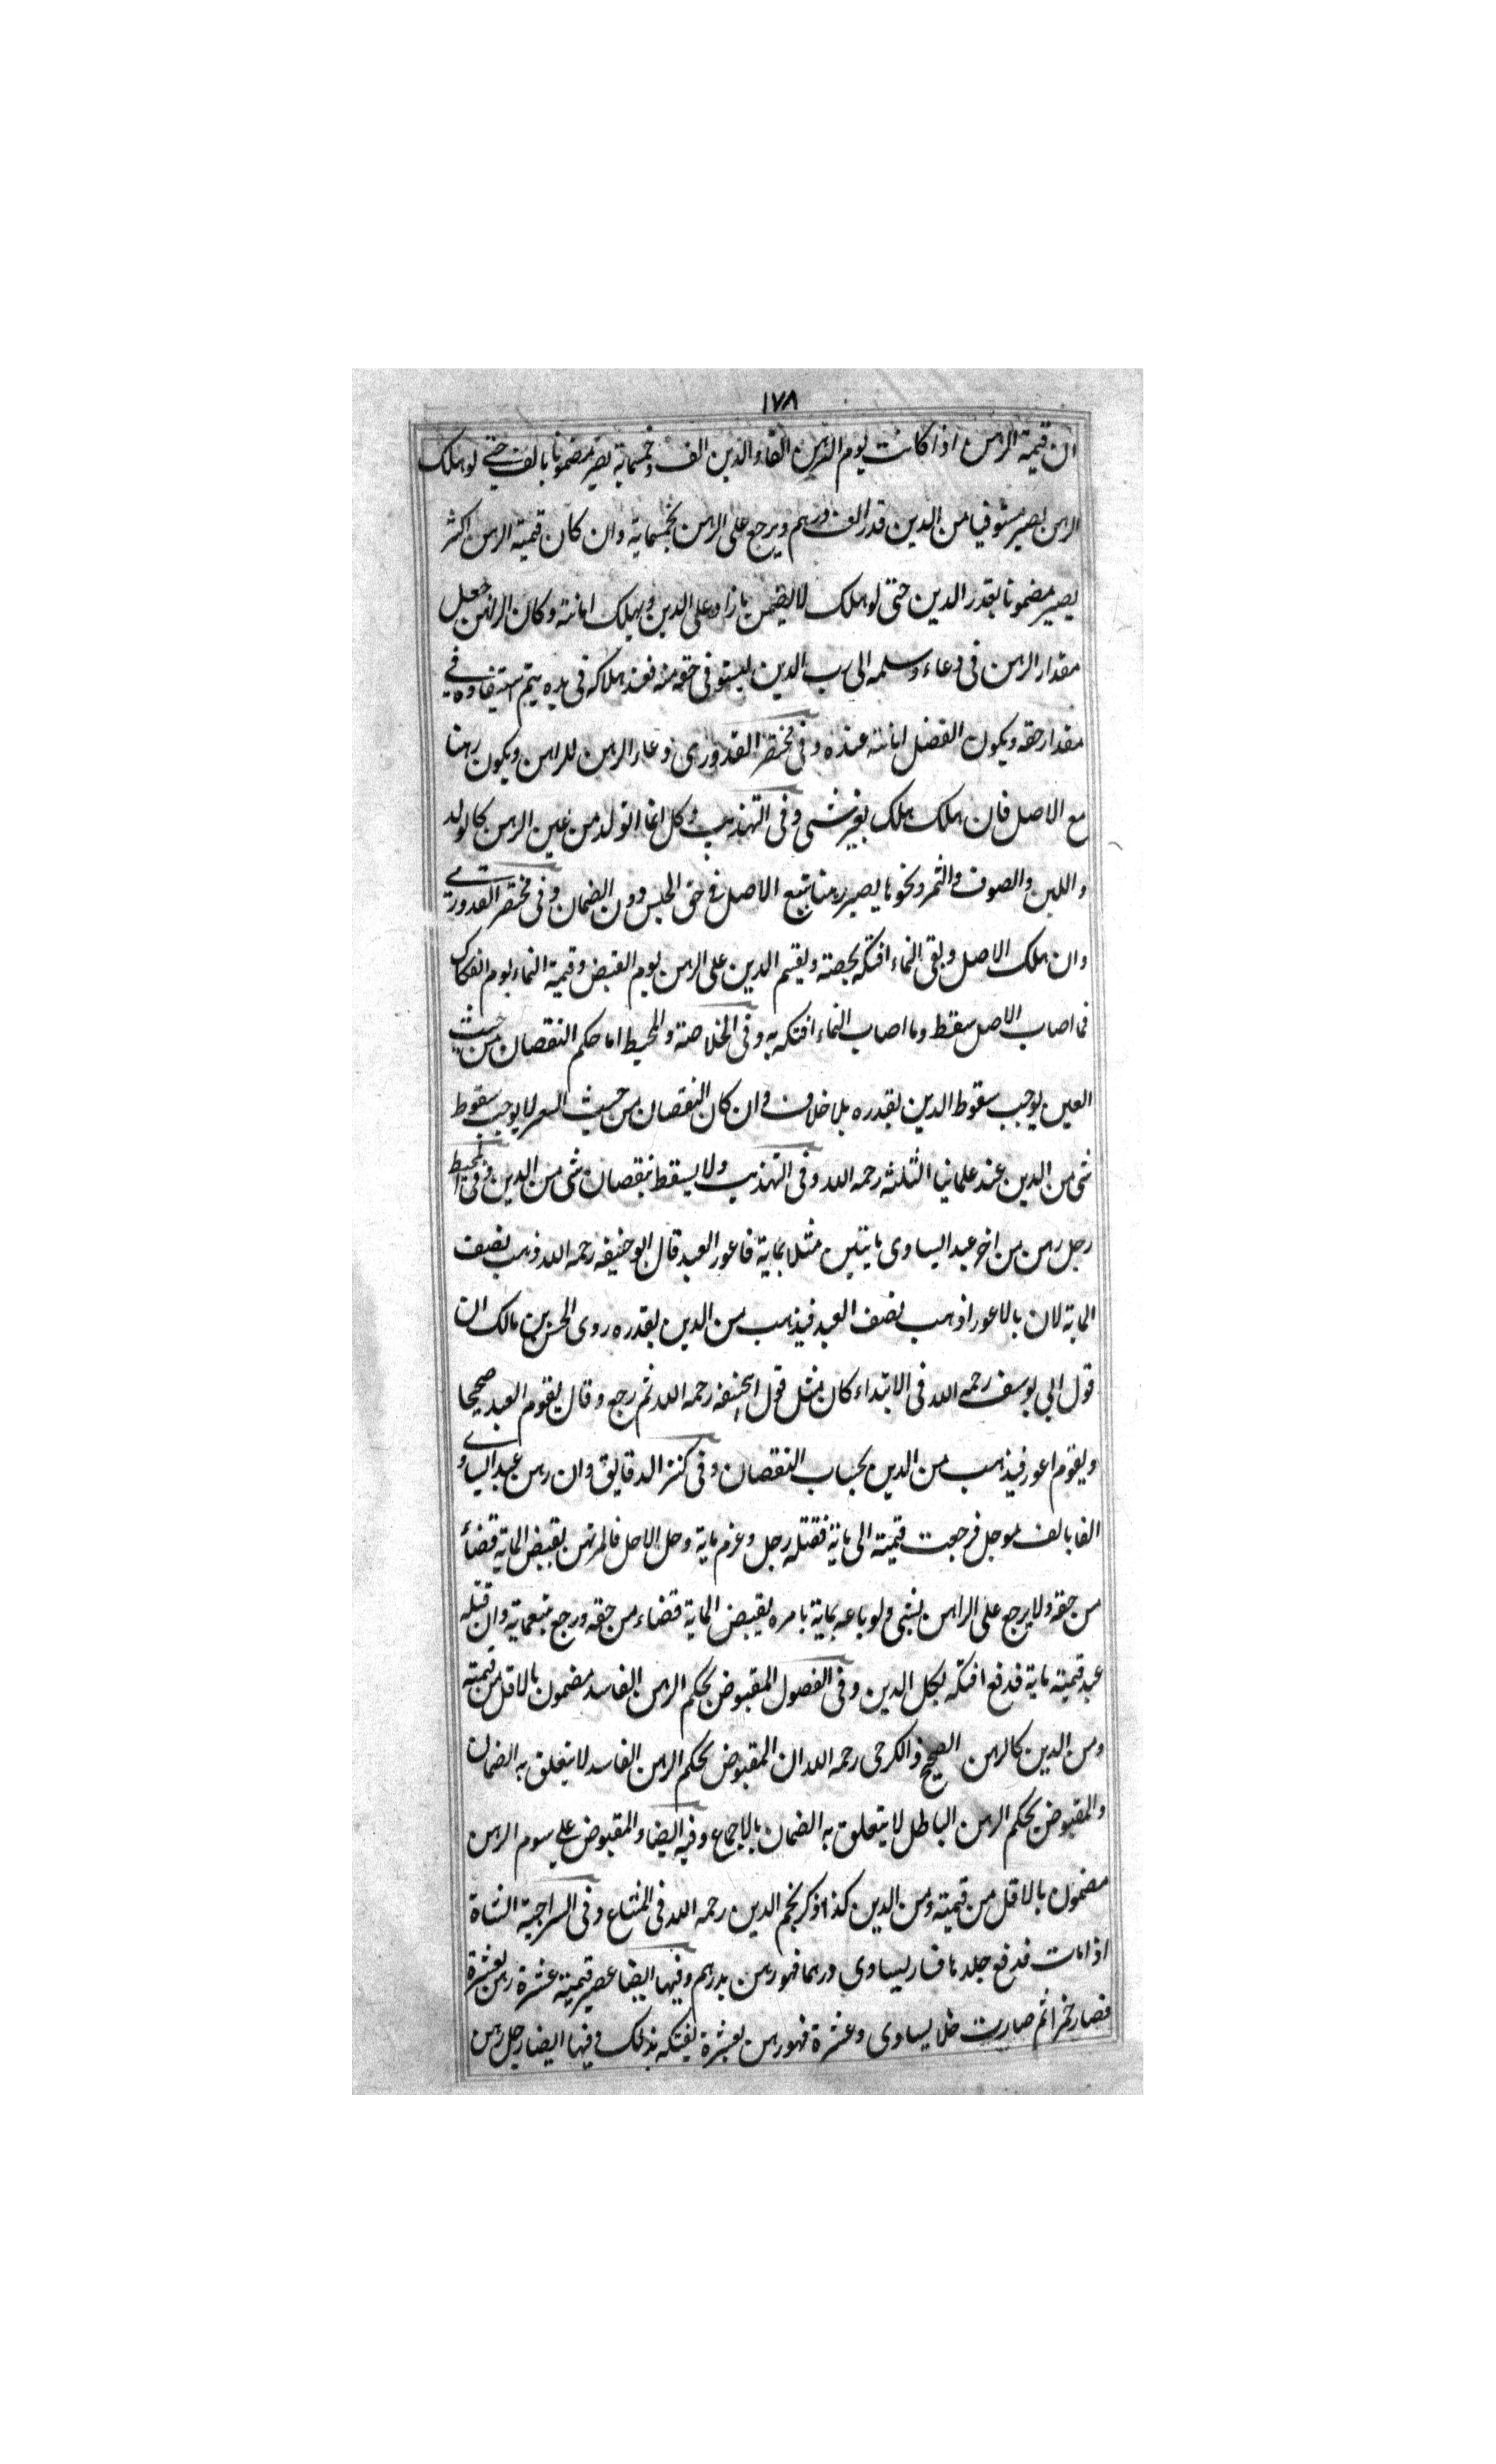 ١٧٨
ان قيمة الرهن اذا كانت يوم الرهن الفا والدين الف وخمسماية يصير مضمونا بالف حتى لو هلك
الرهن يصير مستوفيا من الدين قدر الف درهم ويرجع على الرهن بخمسماية وان كان قيمة الرهن اكثر
يصير مضمونا بقدر الدين حتى لو هلك لا يضمن ما زاد على الدين ويهلك امانة وكان الراهن جعل
مقدار الرهن فى وعاء وسلمه الى رب الدين ليستوفى حقه منه فعند هلاكه فى يده يتم استيفاوه فى
مقدار حقه ويكون الفضل امانة عنده وفى مختصر القدورى ونماء الرهن للراهن ويكون رهنا
مع الاصل فان هلك هلك بغير شى وفى التهذيب وكل نما تولد من عين الرهن كالولد
واللبن والصوف والثمر ونحوها يصير رهنا تبع الاصل فى حق الحبس دون الضمان وفى مختصر القدورى
وان هلك الاصل وبقى النماء افتكه بحصته ويقسم الدين على الرهن يوم القبض وقيمة النماء يوم الفكاك
فما اصاب الاصل سقط وما اصاب النماء افتكه به وفى الخلاصة والمحيط اما حكم النقصان من حيث
العين يوجب سقوط الدين بقدره بلا خلاف وان كان النقصان من حيث السعر لا يوجب سقوط
شى من الدين عند علمائنا الثلثه رحمه الله وفى التهذيب ولا يسقط بنقصان شى من الدين وفى المحيط
رجل رهن من اخر عبد ايساوى مايتين مثلا بماية فاعور العبد قال ابو حنيفه رحمه الله ذهب نصف
الماية لان بالاعور اذهب نصف العبد فيذهب من الدين بقدره روى الحسن بن مالك ان
قول ابى يوسف رحمه الله فى الابتداء كان مثل قول ابيحنيفه رحمه الله ثم رجع وقال يقوم العبد صحيحا
ويقوم اعور فيذهب من الدين بحساب النقصان وفى كنز الدقايق وان رهن عبد ايساوى
الفا بالف موجل فرجعت قيمته الى ماية فقتله رجل وغرم ماية وحل الاجل فالمرتهن يقبض الماية قضاء
من حقه ولا يرجع على الراهن بشى ولو باعه بماية بامره يقبض الماية قضاء من حقه ورجع بتسعماية وان قتله
عبد قيمته ماية فدفع افتكه بكل الدين وفى الفصول المقبوض بحكم الرهن الفاسد مضمون بالاقل من قيمته
ومن الدين كالرهن الصحيح والكرخى رحمه الله ان المقبوض بحكم الرهن الفاسد لا يتعلق به الضمان
والمقبوض بحكم الرهن الباطل لا يتعلق به الضمان بالاجماع وفيه ايضا والمقبوض على سوم الرهن
مضمون بالاقل من قيمته ومن الدين كذا ذكر نجم الدين رحمه الله فى وفى السراجية الشاة
اذا ماتت فدفع جلدها فصار يساوى درهما فهو رهن بدرهم وفيها ايضا عصير قيمته عشرة رهن بعشرة
فصار خمرا ثم صارت خلا يساوى وعشرة فهو رهن بعشرة يفتكه بذلك وفيها ايضا رجل رهن